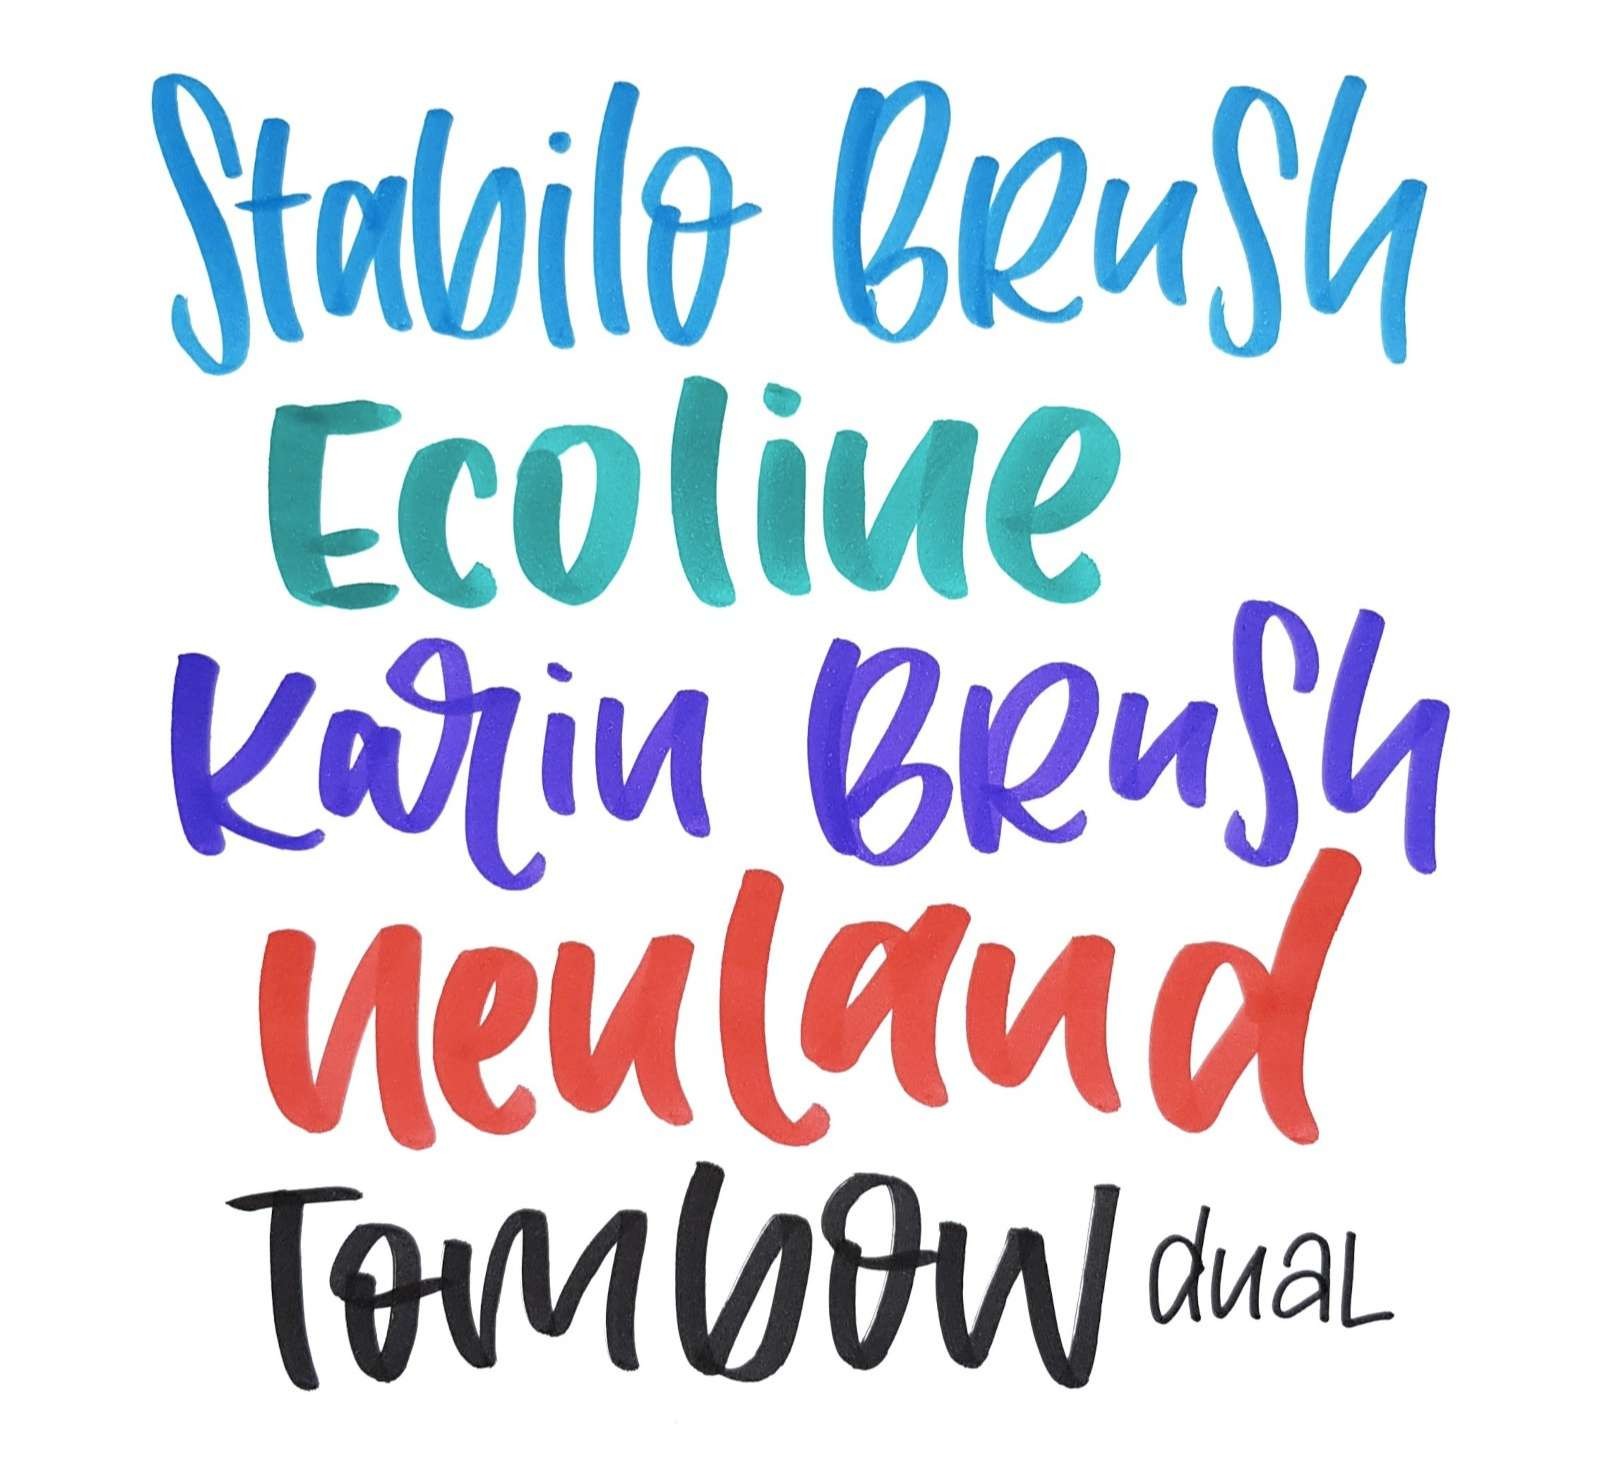 Stabilo Brush
Ecoline
Karin Brush
neuland
Tombow dual